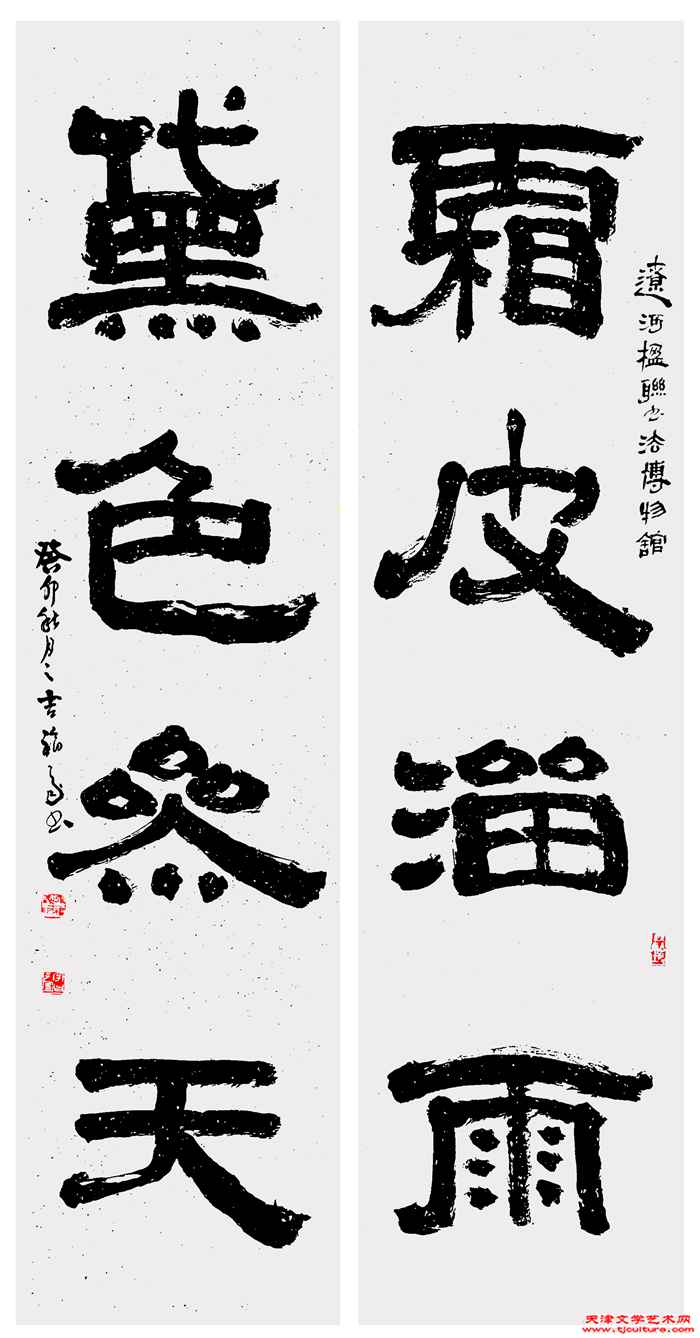 遼河楹聯書法博物館
霜皮溜雨
黛色參天
癸卯秋月之吉書
天津文学艺术网
www.tjculture.com